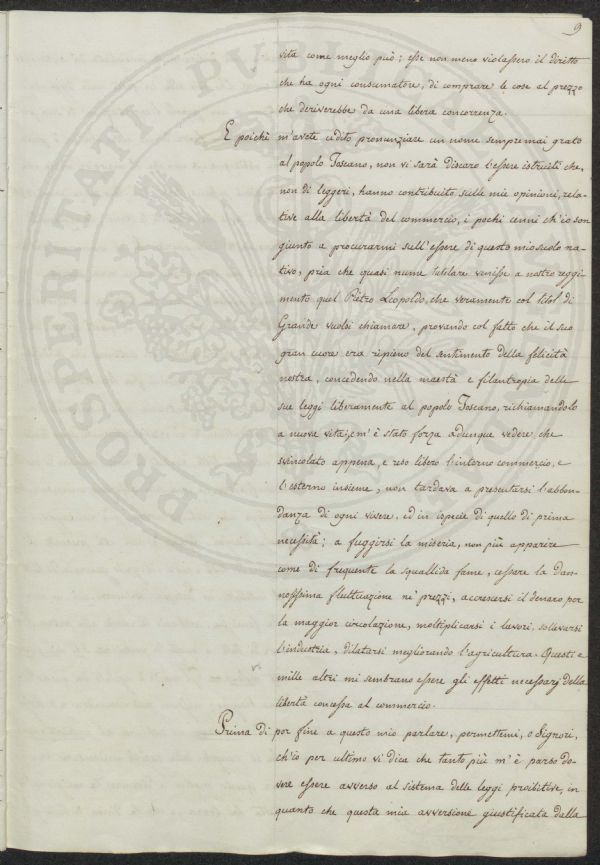 9
vita come meglio può; esse non meno violassero il diritto
che ha ogni consumatore, di comprare le cose al prezzo
che deriverebbe da una libera concorrenza.
E poichè m'avete udito pronunziare un nome sempremai grato
al popolo Toscano, non vi sarà discaro l'essere istruiti che,
non di leggeri, hanno contribuito sulle mie opinioni, rela-
tive alla libertà del commercio, i pochi cenni ch'io son
giunto a procurarmi sull'essere di questo mio suolo na-
tivo, pria che quasi nume tutelare venisse a nostro reggi
mento quel Pietro Leopoldo, che veramente col titol di
Grande vuolsi chiamare, provando col fatto che il suo
gran cuore era ripieno del sentimento della felicità
nostra, concedendo nella maestà e filantropia delle
sue leggi liberamente al popolo Toscano, richiamandolo
a nuova vita; e m'è stato forza adunque vedere che
svincolato appena, e reso libero l'interno commercio, e
l'esterno insieme, non tardava a presentarsi l'abbon-
danza di ogni vivere, ed in ispecie di quello di prima
necessità; a fuggirsi la miseria, non più apparire
come di frequente la squallida fame, cessare la dan-
nosissima fluttuazione ne' prezzi, accrescersi il denaro per
la maggior circolazione, moltiplicarsi i lavori, sollevarsi
l'industria, dilatarsi migliorando l'agricultura. Questi e
mille altri mi sembrano essere gli effetti necessarj della
libertà concessa al commercio.
Prima di por fine a questo mio parlare, permettemi, o Signori,
ch'io per ultimo vi dica che tanto più m'è parso do-
vere essere avverso al sistema delle leggi proibitive, in
quanto che questa mia avversione giustificata dalla
PROSPERITATI PUB